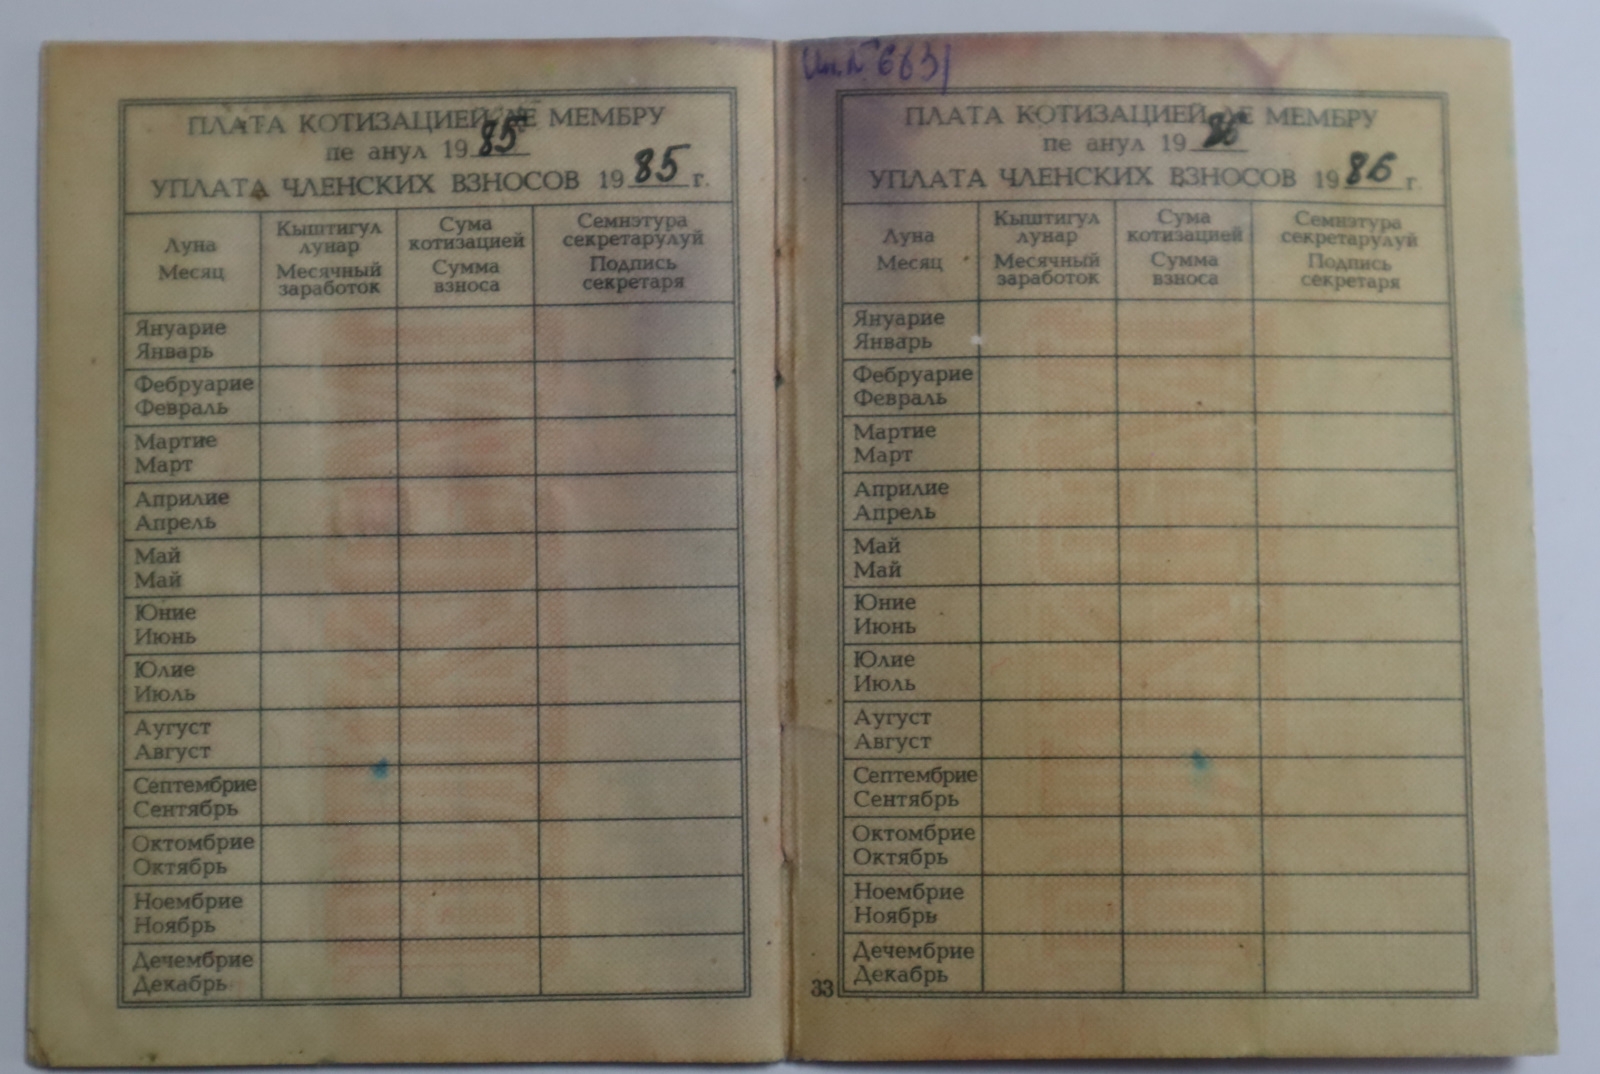 ПЛАТА КОТИЗАЦИЕЙ ДЕ МЕМБРУ
пе анул 1985
УПЛАТА ЧЛЕНСКИХ ВЗНОСОВ 1985 г.
Луна
Месяц
Кыштигул
лунар
Месячный
заработок
Сума
котизацией
Сумма
взноса
Семнэтура
секретарулуй
Подпись
секретаря
Януарие
Январь
Фебруарие
Февраль
Мартие
Март
Априлие
Апрель
Май
Май
Юние
Июнь
Юлие
Июль
Аугуст
Август
Септембрие
Сентябрь
Октомбрие
Октябрь
Ноембрие
Ноябрь
Дечембрие
Декабрь
6631
ПЛАТА КОТИЗАЦИЕЙ ДЕ МЕМБРУ
пе анул 1986
УПЛАТА ЧЛЕНСКИХ ВЗНОСОВ 1986 г.
Луна
Месяц
Кыштигул
лунар
Месячный
заработок
Сума
котизацией
Сумма
взноса
Семнэтура
секретарулуй
Подпись
секретаря
Януарие
Январь
Фебруарие
Февраль
Мартие
Март
Априлие
Апрель
Май
Май
Юние
Июнь
Юлие
Июль
Аугуст
Август
Септембрие
Сентябрь
Октомбрие
Октябрь
Ноембрие
Ноябрь
Дечембрие
Декабрь
33